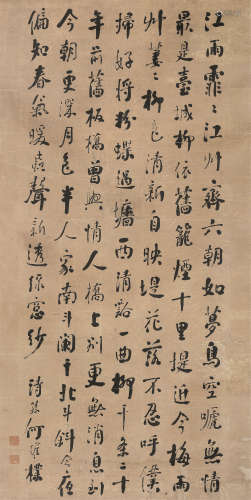 江雨霏〻江艸齊六朝如夢鳥空嗁無情
最是臺城柳依舊籠煙十里堤近今梅雨
艸萋〻柳色清新自映堤花落不忍呼僕
掃好將粉蝶過牆西清谿一曲柳千条二十
年前舊板橋曾與情人橋上別更無消息到
今朝更深月色半人家南斗闌干北斗斜今夜
偏知春氣暖蟲聲新透綠窓紗 詩孫何維樸